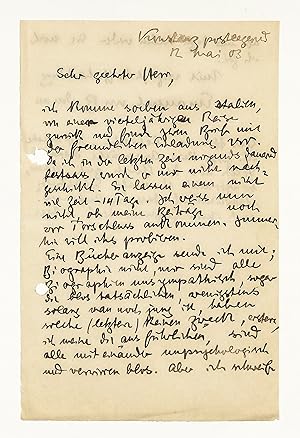 Konstanz postlagernd
12 Mai 03
Sehr geehrter Herr,
ich komme soeben aus Italien,
von einer vierteljährigen Reise
zurück und finde Ihren Brief mit
der freundlichen Einladung vor.
Da ich in der letzten Zeit nirgends dauernd
wurde er mir nicht nach-
geschickt. Sie lassen einem nicht
viel Zeit – 14 Tage. Ich weiss nun
nicht, ob meine Beiträge noch
vor Torschluss ankommen. Immer-
hin will ichs probieren.
Eine Bücheranzeige sende ich mit;
Biographie nicht, mir sind alle
Biographien unsympathisch, sogar
die blos tatsächlichen, wenigstens
solang man noch jung ist, haben
welche (letztere) keinen Zweck, erstere,
ich meine die ausführlichen, sind
alle miteinander unpsychologisch
und verwirren blos. Aber ich schreibe